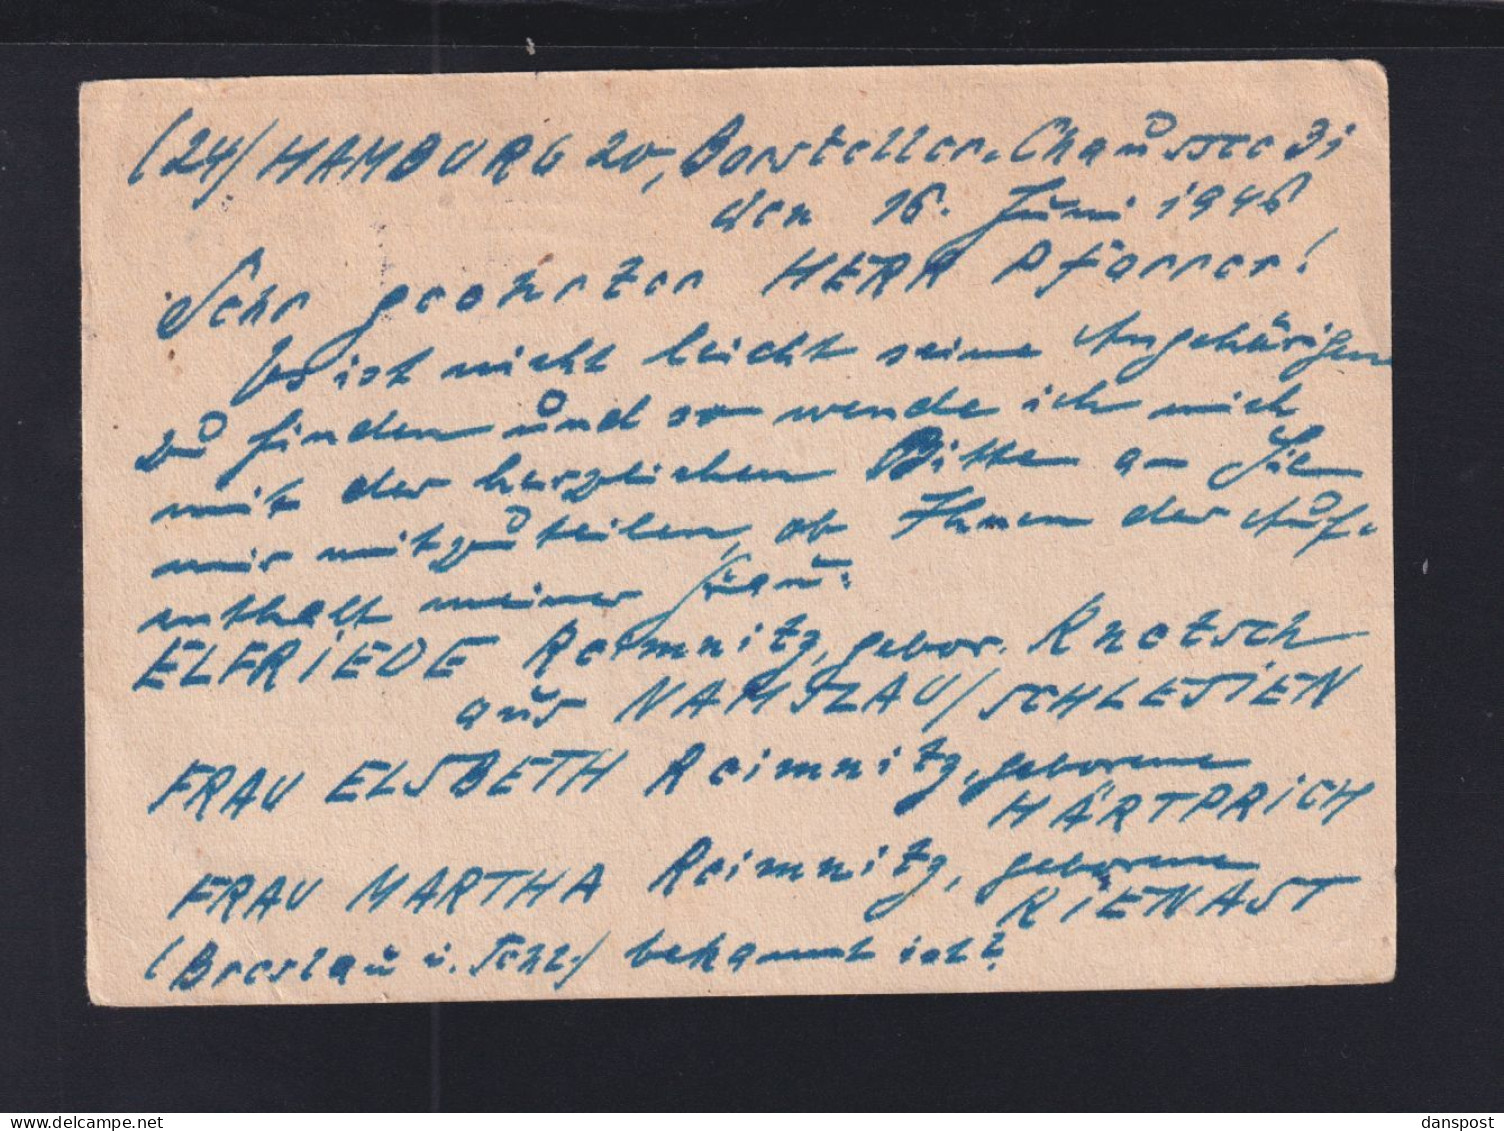 (24) HAMBURG 20, Borsteller-Chaussee 31
den 16. Juni 1946
Sehr geehrter HERR Pfarrer!
Es ist nicht leicht seine Angehörigen
zu finden und so wende ich mich
mit der herzlichen Bitte an Sie
mir mitzuteilen, ob Ihnen der Auf-
enthalt meiner Frau:
ELFRIEDE Reimnitz, gebor. Knetsch
aus NAMSLAU/SCHLESIEN
FRAU ELSBETH Reimnitz, geborene
HÄRTPRICH
FRAU MARTHA Reimnitz, geborene
KIENAST
(Breslau i. Schl.) bekannt ist?
www.delcampe.net
danspost